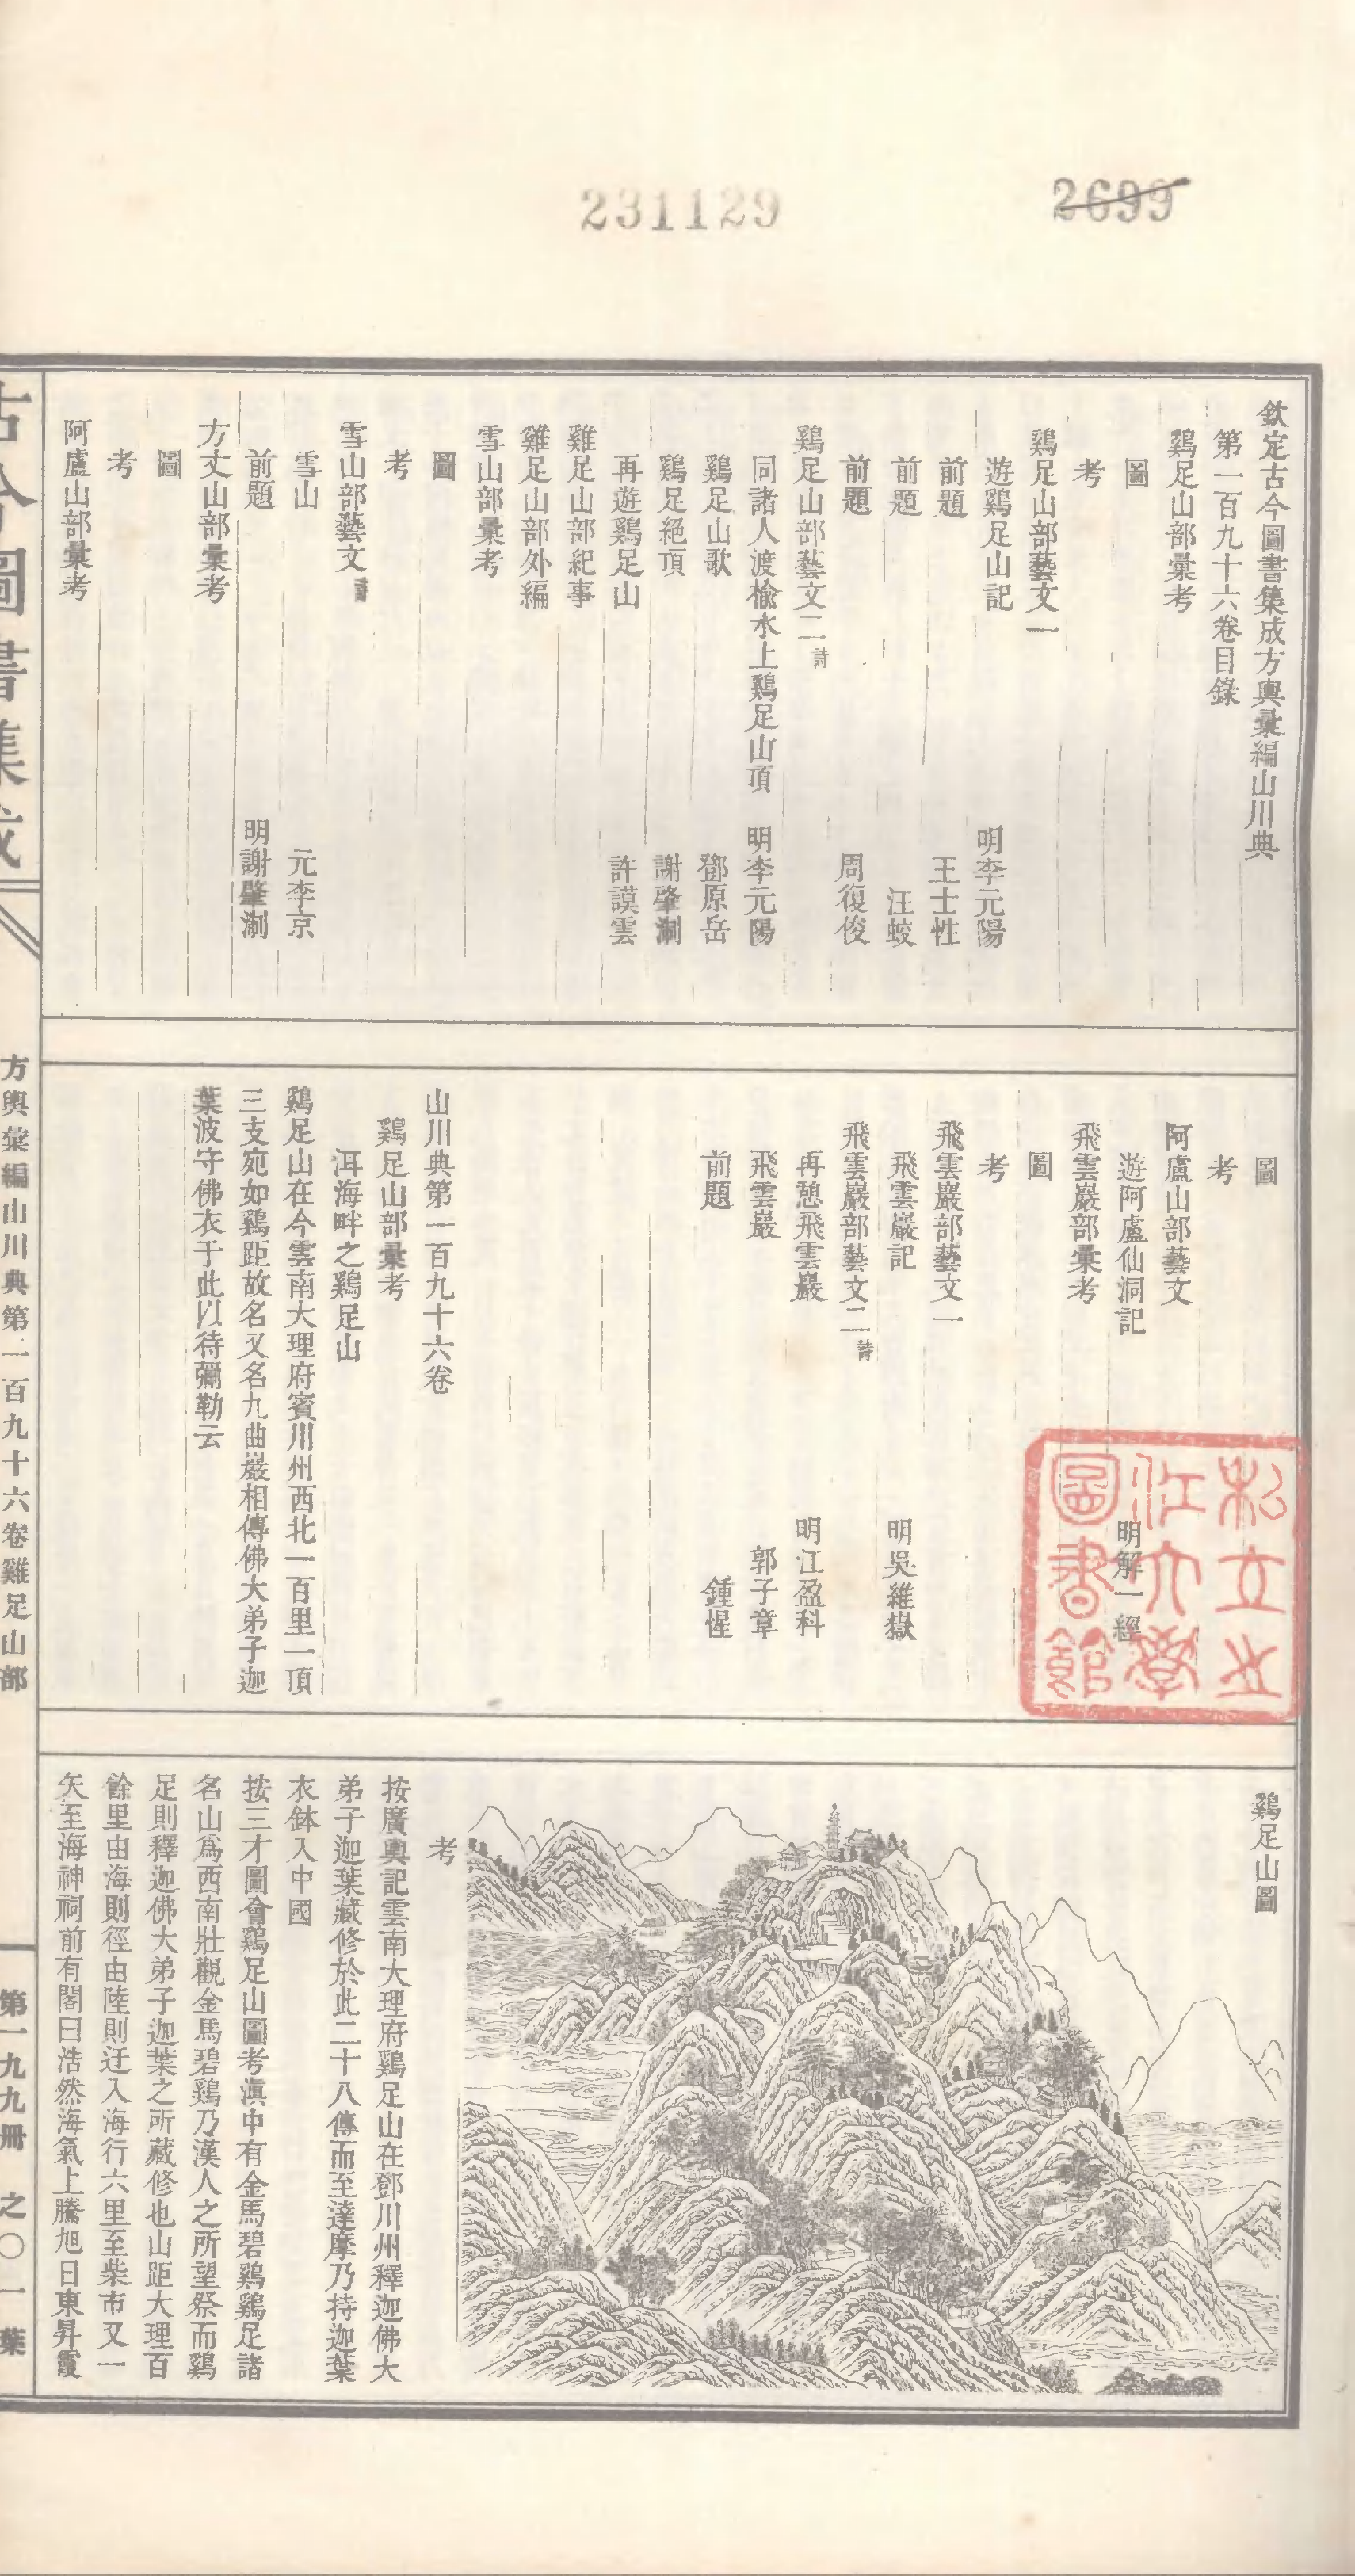 231129
2699
欽定古今圖書集成方輿彙編山川典
第一百九十六卷目錄
鷄足山部彙考
圖
考
鷄足山部藝文一
遊鷄足山記 明李元陽
前題 王士性
前題 汪蛟
前題 周復俊
鷄足山部藝文二 詩
同諸人渡楡水上鷄足山頂 明李元陽
鷄足山歌 鄧原岳
鷄足絕頂 謝肇淛
再遊鷄足山 許謨雲
雞足山部紀事
雞足山部外編
雪山部彙考
圖
考
雪山部藝文 詩
雪山 元李京
前題 明謝肇淛
方丈山部彙考
圖
考
阿盧山部彙考
圖
考
阿盧山部藝文
遊阿盧仙洞記 明解一經
飛雲巖部彙考
圖
考
飛雲巖部藝文一
飛雲巖記 明吳維嶽
飛雲巖部藝文二 詩
再憩飛雲巖 明江盈科
飛雲巖 郭子章
前題 鍾惺
山川典第一百九十六卷
鷄足山部彙考
洱海畔之鷄足山
鷄足山在今雲南大理府賓川州西北一百里一頂
三支宛如鷄距故名又名九曲巖相傳佛大弟子迦
葉波守佛衣于此以待彌勒云
私立之
江大學
圖書館
鷄足山圖
考
按廣輿記雲南大理府鷄足山在鄧川州釋迦佛大
弟子迦葉藏修於此二十八傳而至達摩乃持迦葉
衣鉢入中國
按三才圖會鷄足山圖考滇中有金馬碧鷄鷄足諸
名山爲西南壯觀金馬碧鷄乃漢人之所望祭而鷄
足則釋迦佛大弟子迦葉之所藏修也山距大理百
餘里由海則徑由陸則迂入海行六里至柴市又一
矢至海神祠前有閣曰浩然海氣上騰旭日東昇霞
古今圖書集成
方輿彙編山川典第一百九十六卷雞足山部
第一九九冊 之〇一葉